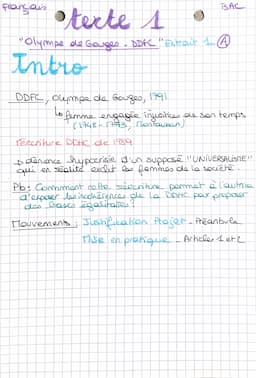 Français
BAC
texte 1
"Olympe de Gouges - DDFC" Extrait 1 A
Intro
DDFC, Olympe de Gouges, 1791
↳ femme engagée injustices de son temps
(1748-1793, Montauban)
réécriture DDHC de 1789
↳ dénonce hypocrisie d'un supposé "UNIVERSALISME"
qui en réalité exclut les femmes de la société.
Pb: Comment cette réécriture permet à l'autrice
d'exposer les incohérences de la DDHC pour proposer
des bases égalitaires?
Mouvements: Justification Projet - Préambule
Mise en pratique - Articles 1 et 2